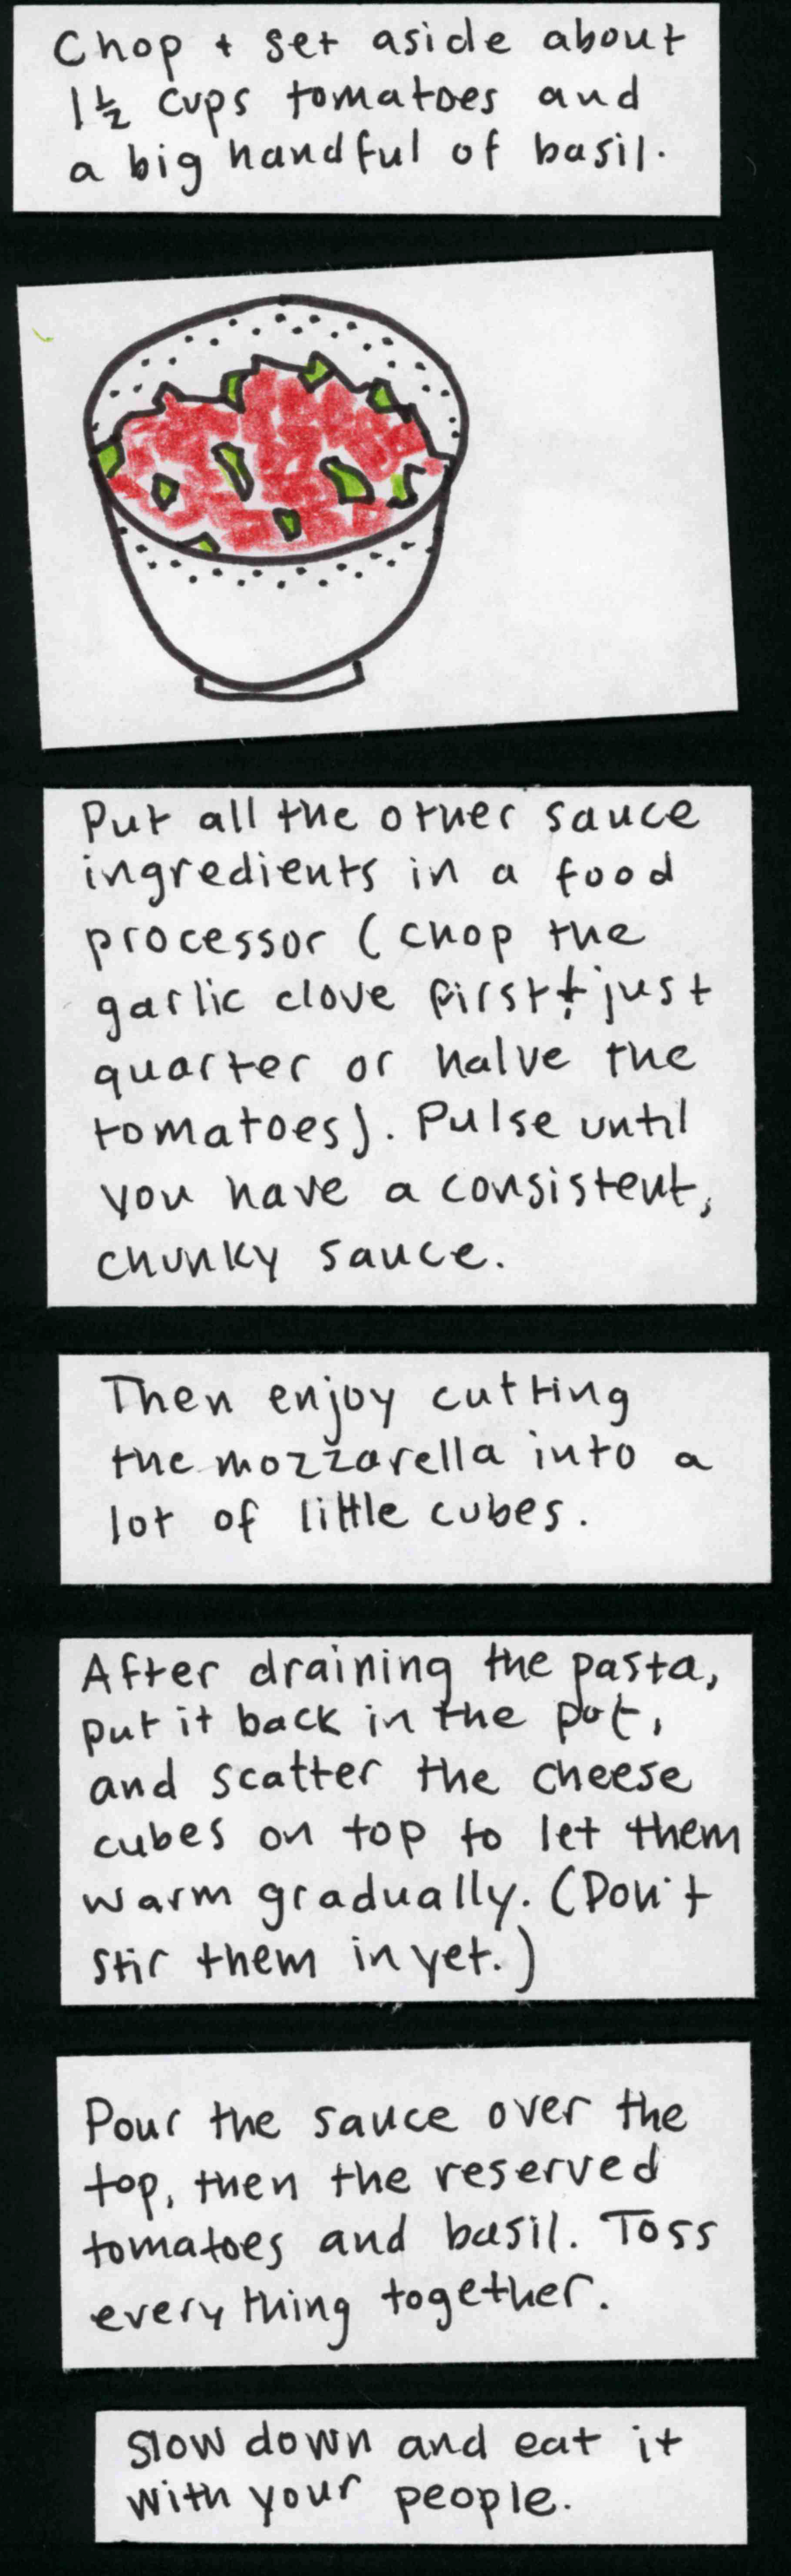 Chop + set aside about
1½ cups tomatoes and
a big handful of basil.
Put all the other sauce
ingredients in a food
processor (chop the
garlic clove first + just
quarter or halve the
tomatoes). Pulse until
you have a consistent,
chunky sauce.
Then enjoy cutting
the mozzarella into a
lot of little cubes.
After draining the pasta,
put it back in the pot,
and scatter the cheese
cubes on top to let them
warm gradually. (Don't
stir them in yet.)
Pour the sauce over the
top, then the reserved
tomatoes and basil. Toss
everything together.
Slow down and eat it
with your people.